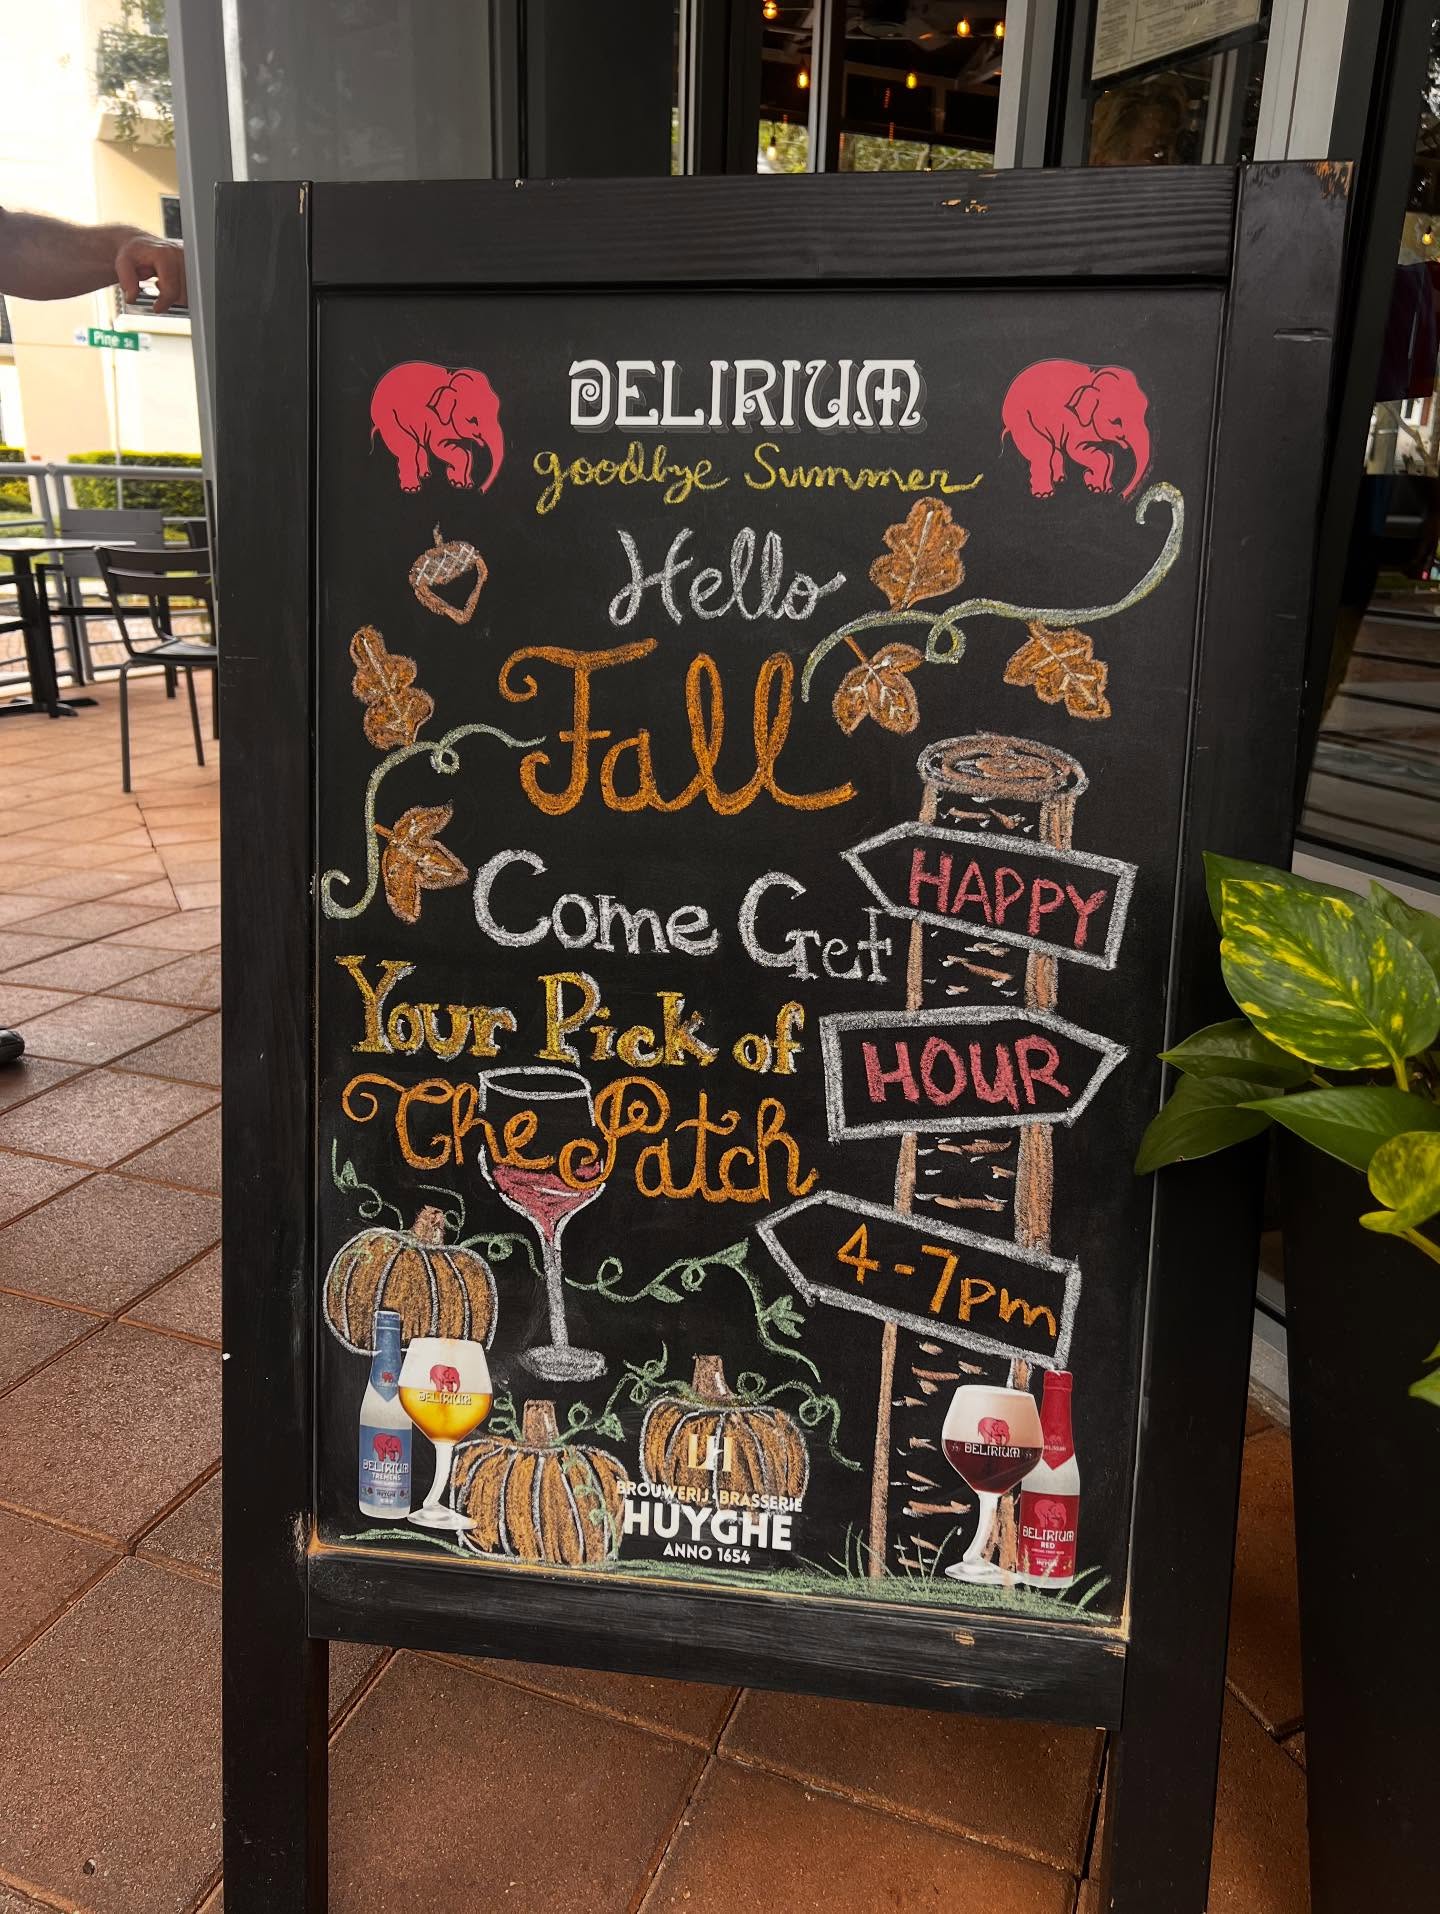 Pine St
DELIRIUM
goodbye Summer
Hello
Fall
Come Get
Your Pick of
The Patch
HAPPY
HOUR
4-7pm
DELIRIUM
DELIRIUM
TREMENS
HUYGHE
DELIRIUM
DELIRIUM
RED
HUYGHE
LH
BROUWERIJ·BRASSERIE
HUYGHE
ANNO 1654